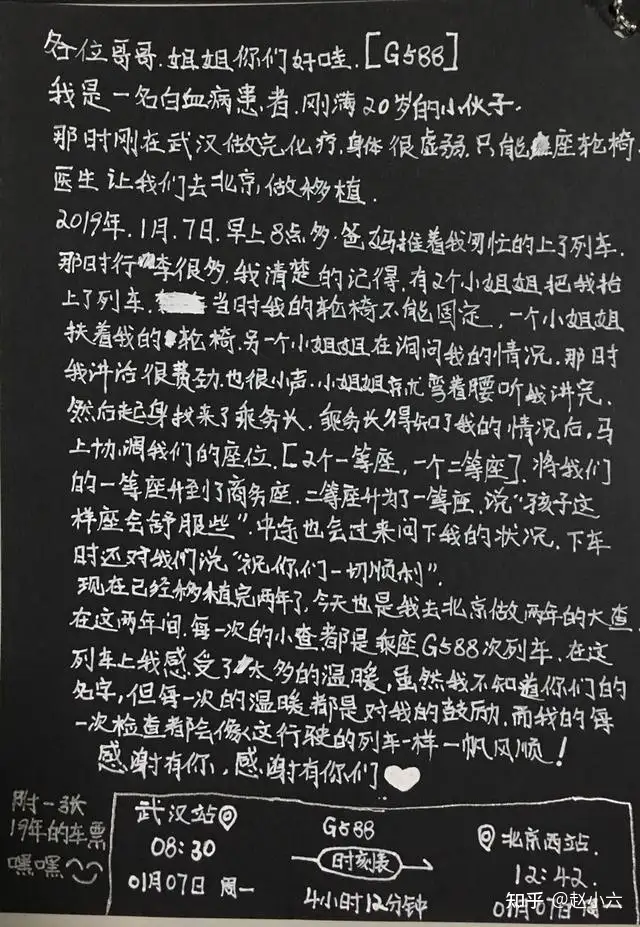 各位哥哥.姐姐你们好哇.[G588]
我是一名白血病患者.刚满20岁的小伙子.
那时刚在武汉做完化疗.身体很虚弱.只能座轮椅.
医生让我们去北京做移植.
2019年.1月.7日.早上8点多.爸妈推着我匆忙的上了列车.
那日时行李很多.我清楚的记得.有2个小姐姐把我抬
上了列车.当时我的轮椅不能固定,一个小姐姐
扶着我的轮椅.另一个小姐姐在询问我的情况.那时
我讲话很费劲也很小声.小姐姐就弯着腰听我讲完.
然后起身找来了乘务长.乘务长得知了我的情况后,马
上协调我们的座位.[2个一等座,一个二等座].将我们
的一等座升到了商务座.二等座升为了一等座.说“孩子这
样座会舒服些”.中途也会过来问下我的状况.下车
时还对我们说“祝你们一切顺利”.
现在已经移植完两年了.今天也是我去北京做两年的大查.
在这两年间.每一次的小查都是乘座G588次列车.在这
列车上我感受了太多的温暖,虽然我不知道你们的
名字,但每一次的温暖都是对我的鼓励.而我的每
一次检查都会像这行驶的列车一样一帆风顺!
感谢有你,感谢有你们
附一张
19年的车票
嘿嘿
武汉站
08:30
01月07日 周一
G588
时刻表
4小时12分钟
北京西站.
12:42.
01月07日 周一
知乎 @赵小六